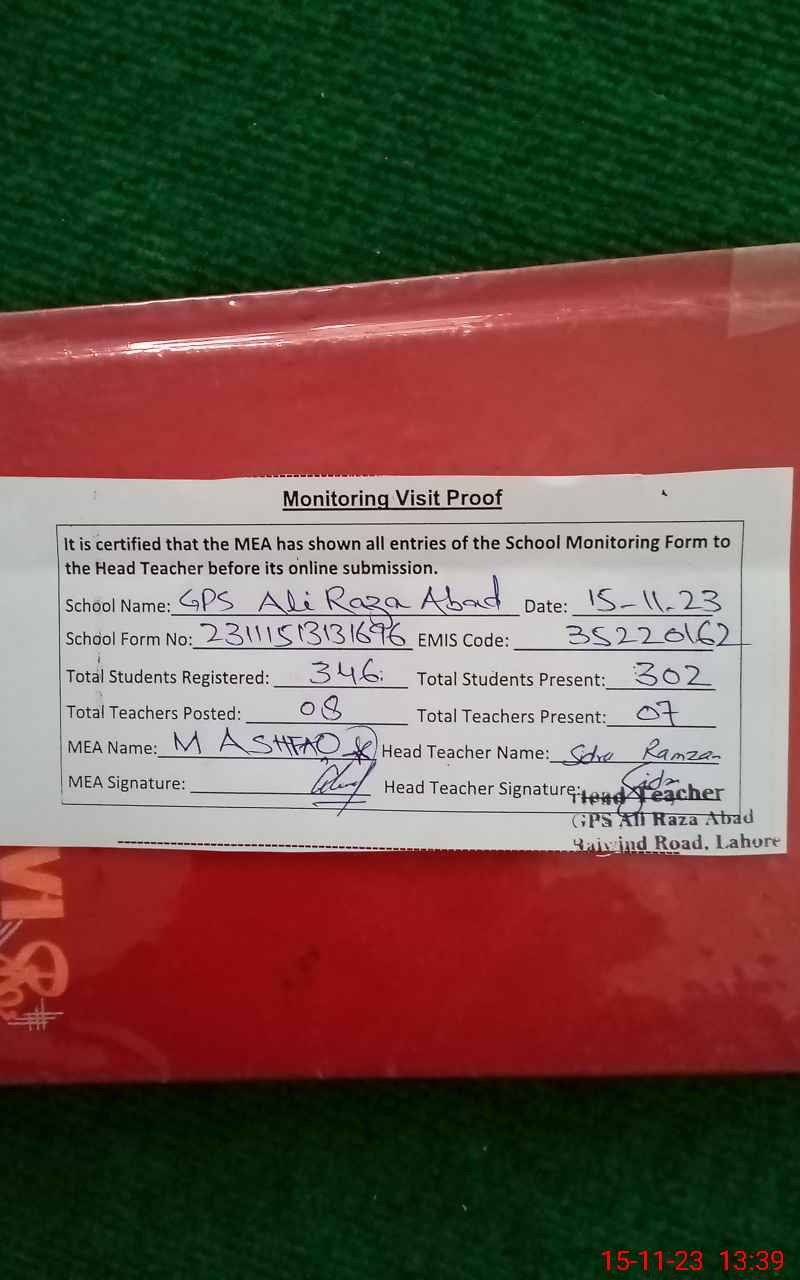 Monitoring Visit Proof
It is certified that the MEA has shown all entries of the School Monitoring Form to
the Head Teacher before its online submission.
School Name: GPS Ali Raza Abad Date: 15-11-23
School Form No: 23111513131696 EMIS Code: 35220162
Total Students Registered: 346 Total Students Present: 302
Total Teachers Posted: 08 Total Teachers Present: 07
MEA Name: M ASHFAQ Head Teacher Name: Sidra Ramzan
MEA Signature: Head Teacher Signature: Sidra
Head Teacher
GPS Ali Raza Abad
Raiwind Road, Lahore
15-11-23 13:39